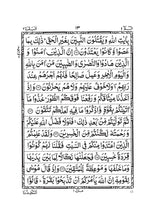 البقرة ٢ ١٣ الٓمّٓ ١
بِاٰيٰتِ اللّٰهِ وَيَقْتُلُوْنَ النَّبِيّٖنَ بِغَيْرِ الْحَقِّ ذٰلِكَ بِمَا
عَصَوْا وَّكَانُوْا يَعْتَدُوْنَ اِنَّ الَّذِيْنَ اٰمَنُوْا وَ
الَّذِيْنَ هَادُوْا وَالنَّصٰرٰى وَالصّٰبِـِٕيْنَ مَنْ اٰمَنَ بِاللّٰهِ
وَالْيَوْمِ الْاٰخِرِ وَعَمِلَ صَالِحًا فَلَهُمْ اَجْرُهُمْ عِنْدَ
رَبِّهِمْ وَلَا خَوْفٌ عَلَيْهِمْ وَلَا هُمْ يَحْزَنُوْنَ وَاِذْ
اَخَذْنَا مِيْثَاقَكُمْ وَرَفَعْنَا فَوْقَكُمُ الطُّوْرَ خُذُوْا مَا
اٰتَيْنٰكُمْ بِقُوَّةٍ وَّاذْكُرُوْا مَا فِيْهِ لَعَلَّكُمْ تَتَّقُوْنَ
ثُمَّ تَوَلَّيْتُمْ مِّنْ بَعْدِ ذٰلِكَ فَلَوْلَا فَضْلُ اللّٰهِ عَلَيْكُمْ
وَرَحْمَتُهٗ لَكُنْتُمْ مِّنَ الْخٰسِرِيْنَ وَلَقَدْ عَلِمْتُمُ
الَّذِيْنَ اعْتَدَوْا مِنْكُمْ فِى السَّبْتِ فَقُلْنَا لَهُمْ كُوْنُوْا
قِرَدَةً خٰسِـِٕيْنَ فَجَعَلْنٰهَا نَكَالًا لِّمَا بَيْنَ يَدَيْهَا وَ
مَا خَلْفَهَا وَمَوْعِظَةً لِّلْمُتَّقِيْنَ وَاِذْ قَالَ مُوْسٰى
لِقَوْمِهٖٓ اِنَّ اللّٰهَ يَاْمُرُكُمْ اَنْ تَذْبَحُوْا بَقَرَةً قَالُوْٓا